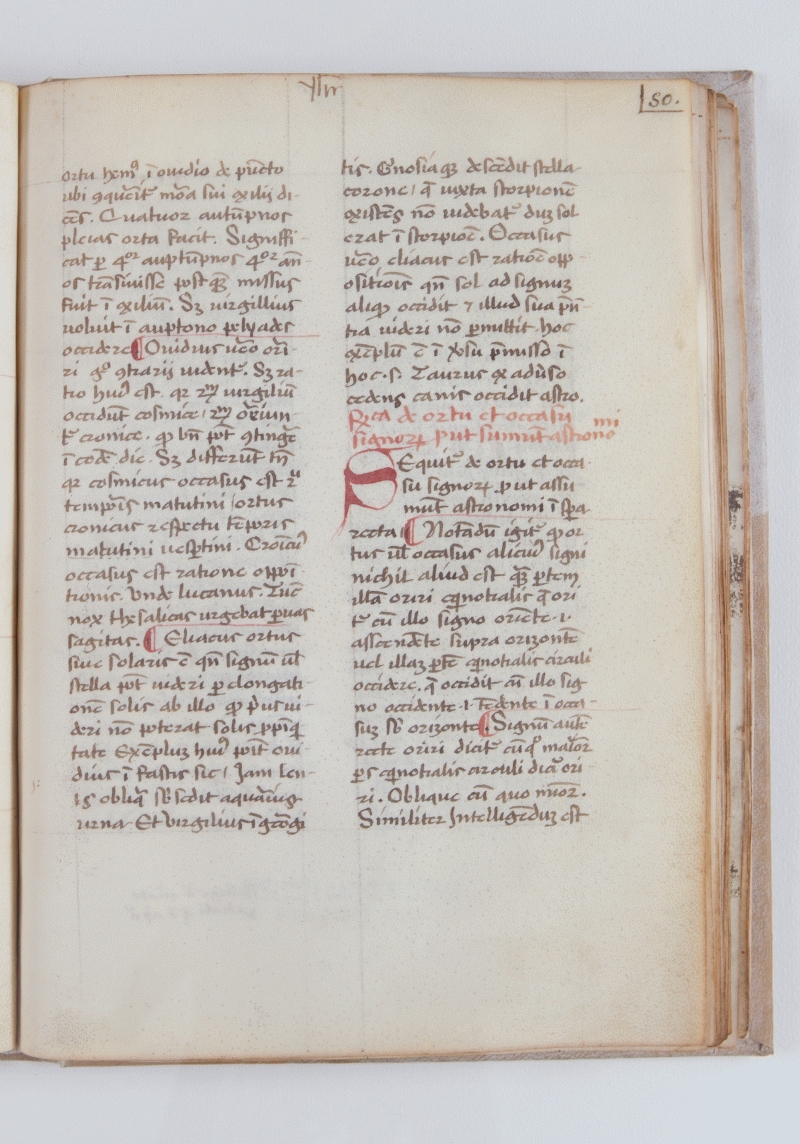 xliii
50.
ortu hemꝰ ī ouidio de pūcto
ubi ꝯquerit᷑ mōa sui exilij di-
cēs. Quatuor autūpnos
pleias orta facit. Signiffi-
cat ꝑ 4ᵒʳ auptūpnos 4ᵒʳ an̄-
os trāsiuisse postqꝫ missus
fuit ī exiliū. Sꝫ uirgillius
uoluit ī auptono pelyades
occidere ¶ Ouidius uͦo ori
ri gͦ ꝯtrarij uident᷑. Sꝫ ra-
tio huiꝰ est. qꝛ uirgiliū
occidūt cosmice / oriun-
t᷑ cronice. qͦ bn̄ pōt ꝯtinge
ī eodē die. Sꝫ differūt tn̄
qꝛ cosmicus occasus est
temporis matutini / ortus
cronicus respectu tēporis
matutini uesꝑtini. Cronicꝰ
occasus est ratione oppoī-
tionis. Vnde lucanus. Tūc
nox thesalicas urgebat paruas
sagitas. ¶ Eliacus ortus
siue solaris ē qn̄ signū ul̄
stella pōt uideri ꝑ elongati-
onē solis ab illo qͦ pͥus ui-
deri nō poterat solis ꝓpīq
tate Exēpluꝫ huiꝰ poīt oui-
dius ī fastis sic / Jam leu-
is obliq̄ sb̄sedit aquariꝰ
urna. Et virgilius ī georgi
tis. Gnosiaqꝫ descēdit stella
corone / q̄ iuxta scorpionē
existēs nō uidebat᷑ duꝫ sol
erat ī scorpiōe. Occasus
uͦo eliacus est ratiōe opp-
ositiōis qn̄ sol ad signuꝫ
aliqͦ occidit ⁊ illud sua pn̄-
tia uideri nō ꝑmittit. hoc
exēplū ē ī ꝟsu pͥmisso ī
hoc .s. Taurus et aduͥso
cedens canis occidit astro.
Rͨca de ortu et occasu
signorꝝ put sumūt astronomi
SEquit᷑ de ortu et occa-
su signorꝝ put assu-
mūt astronomi ī spͣa
recta ¶ Notādū igit᷑ qͦ or-
tus ul̄ occasus alicuiꝰ signi
nichil aliud est qꝫ ꝑtem
illā oriri eqinotialis q̄ ori
t᷑ cū illo signo oriēte .i.
ascendēte supra orizontē
uel illaꝫ ꝑtē eqinotialis circuli
occidere, q̄ occidit cū illo sig-
no occidente .i. tēdente ī occa-
suꝫ sb̄ orizonte ¶ Signū autē
recte oriri dicit᷑ cū qͦ maior
ꝑs eqinotialis circuli dicā ori-
ri. Oblique cū quo minor.
Similiter Intelligēduꝫ est